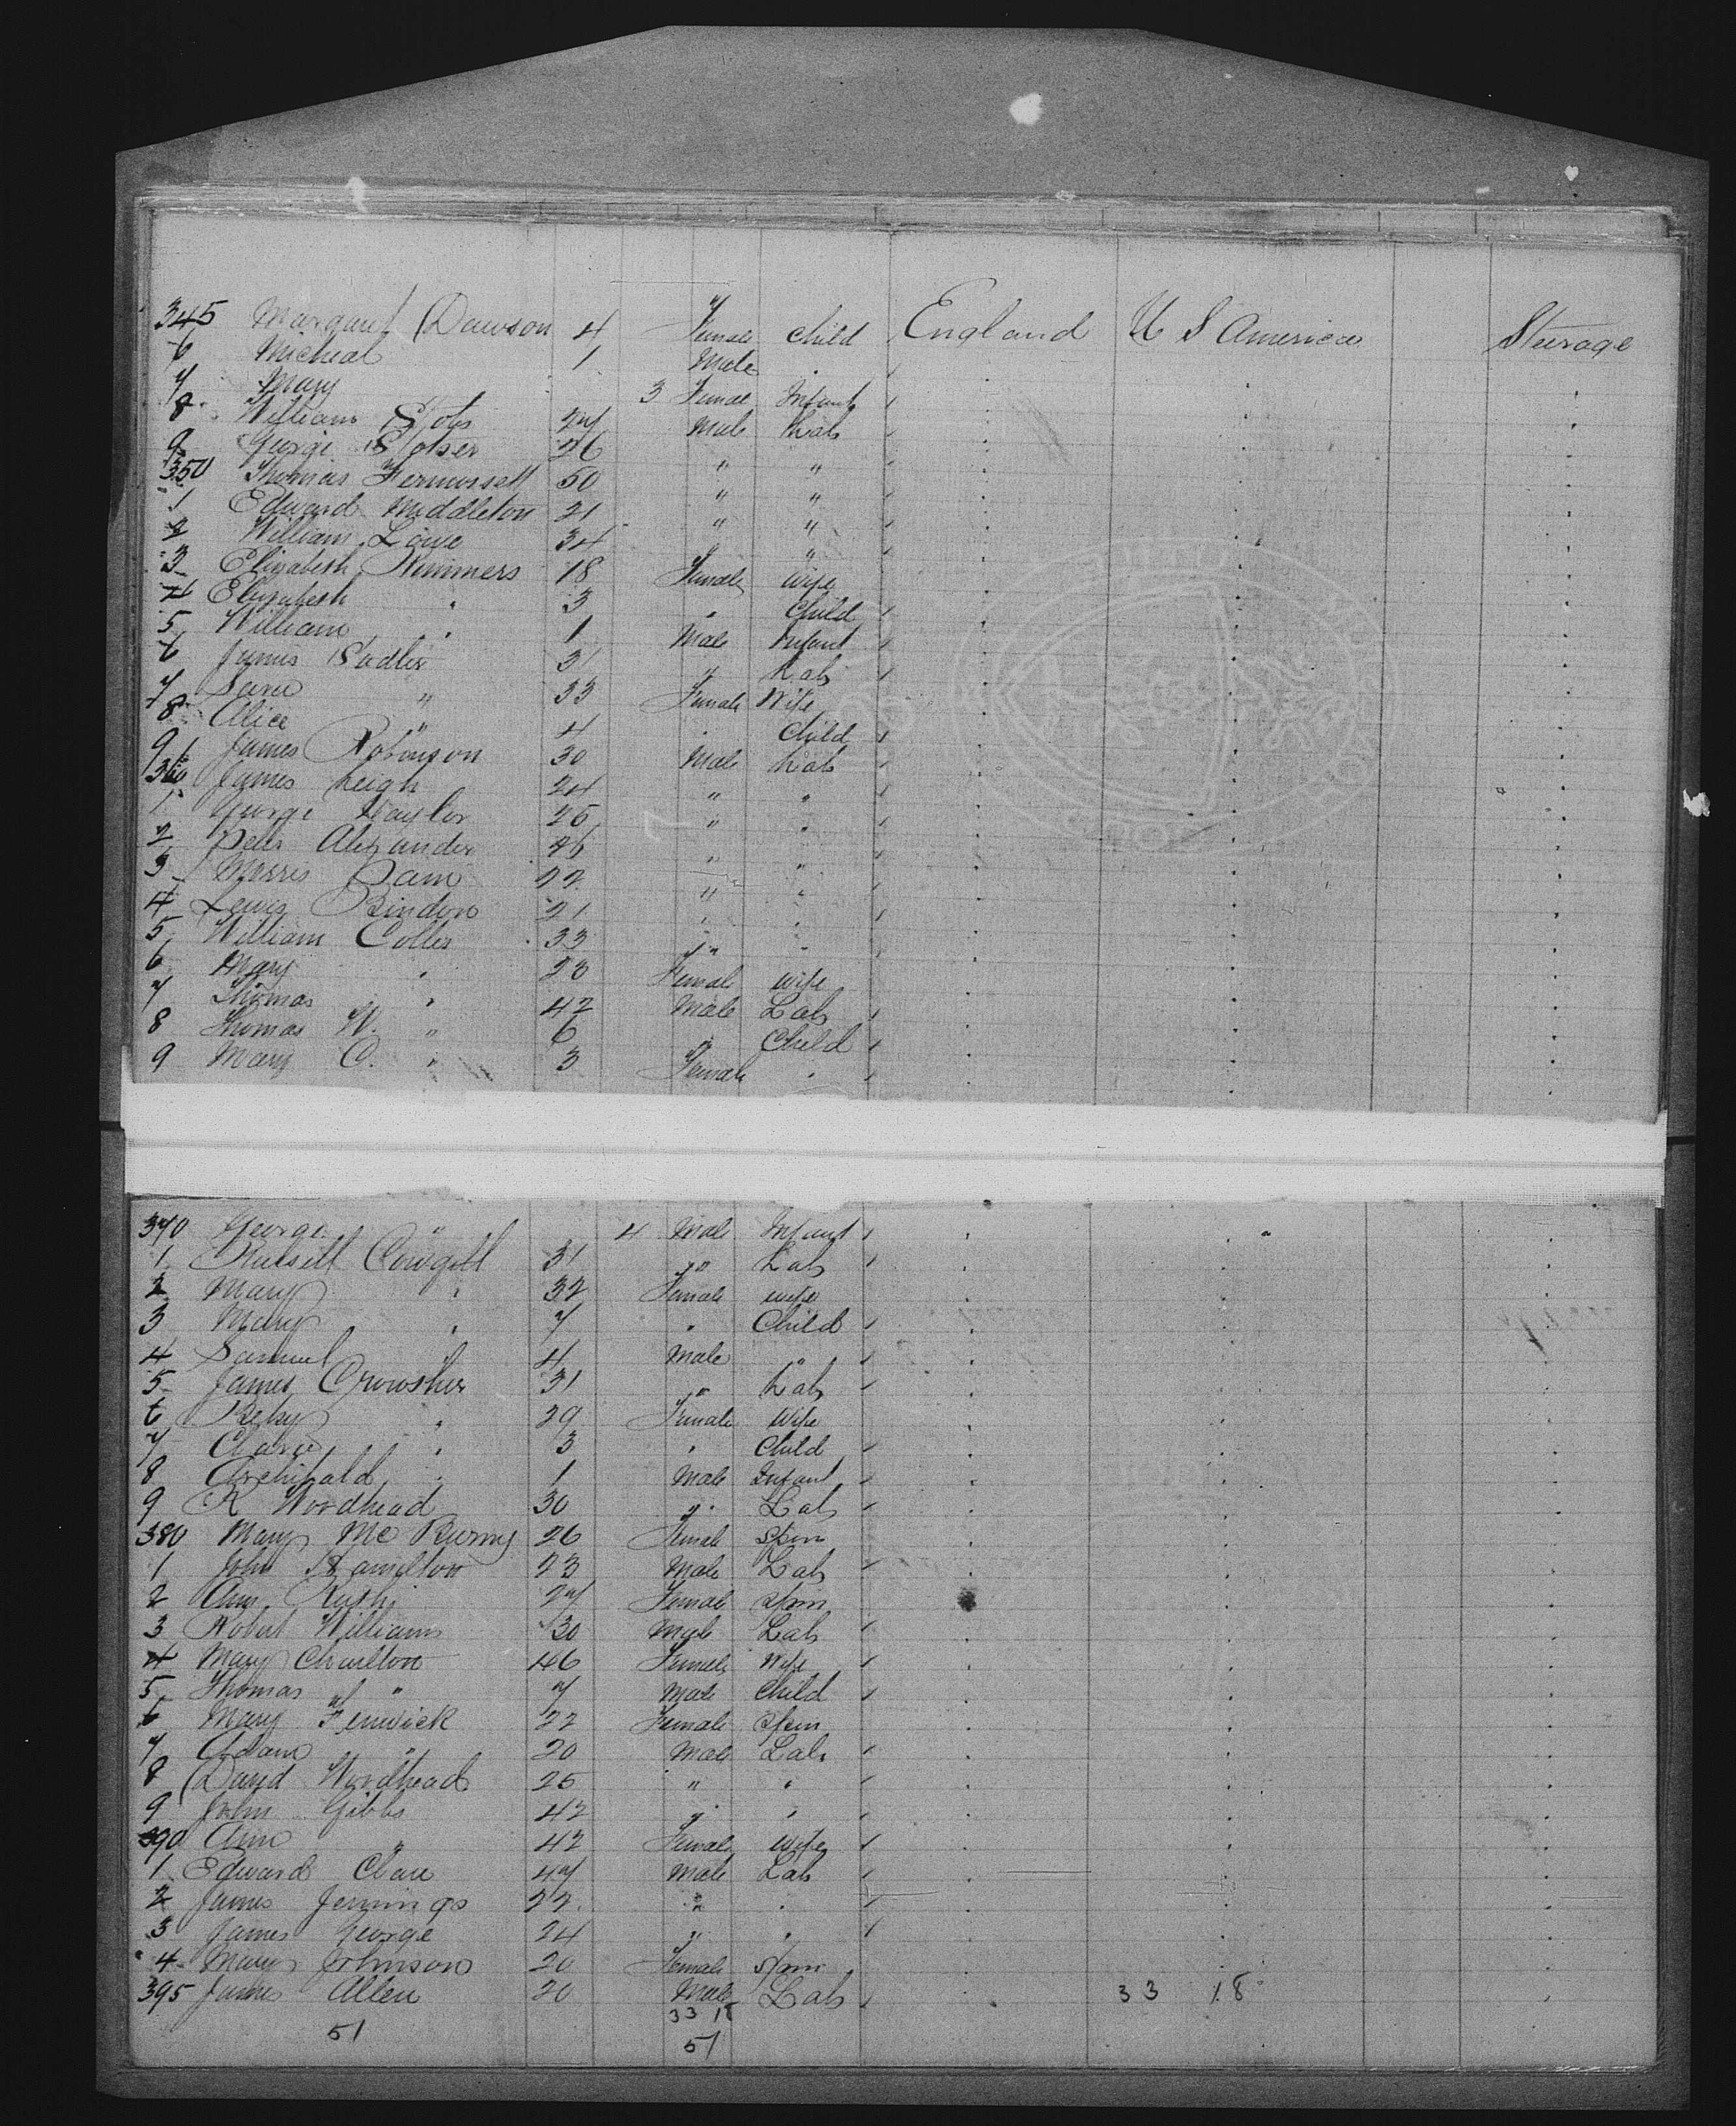 345 Margaret Dawson 4 Female Child England U S America Steerage
6 Micheal 1 Male "
7 Mary 3 Female Infant
8 William 27 Male Lab
9 George 26 " "
350 Thomas 50 " "
1 Edward Middleton 21 " "
2 William Lowe 34 " "
3 Elizabeth 18 Female wife
4 Elizabeth " 3 " Child
5 William " 1 Male Infant
6 James Sadler 31 " Lab
7 Sara " 33 Female Wife
8 Alice " 4 " Child
9 James Robinson 30 Male Lab
360 James Leigh 24 " "
1 George 25 " "
2 Peter Alexander 46 " "
3 Morris 22 " "
4 Lewis Bindon 21 " "
5 William Colles 33 " "
6 Mary " 28 Female wife
7 Thomas " 42 Male Lab
8 Thomas W. " 6 " Child
9 Mary C. " 3 Female "
370 George " 4 Male Infant
1 Russell Cowgill 31 " Lab
2 Mary " 32 Female wife
3 Mary " 7 " Child
4 Samuel " 4 Male "
5 James Crowsher 31 " Lab
6 Betsy " 29 Female Wife
7 Clara " 3 " Child
8 Archibald " 1 Male Infant
9 R Wordhead 30 " Lab
380 Mary Mc Burny 26 Female Spin
1 John Hamilton 23 Male Lab
2 Ann 27 Female Spin
3 Robert Williams 30 Male Lab
4 Mary Charlton 46 Female Wife
5 Thomas " 7 Male Child
6 Mary Fenwick 22 Female Spin
7 Adam " 20 Male Lab
8 David Wordhead 25 " "
9 John Gibbs 42 " "
390 Ann " 42 Female wife
1 Edward Clare 47 Male Lab
2 James Jennings 22 " "
3 James George 24 " "
4 Mary Johnson 20 Female Spin
395 James Allen 20 Male Lab 33 18
33 18
51 51